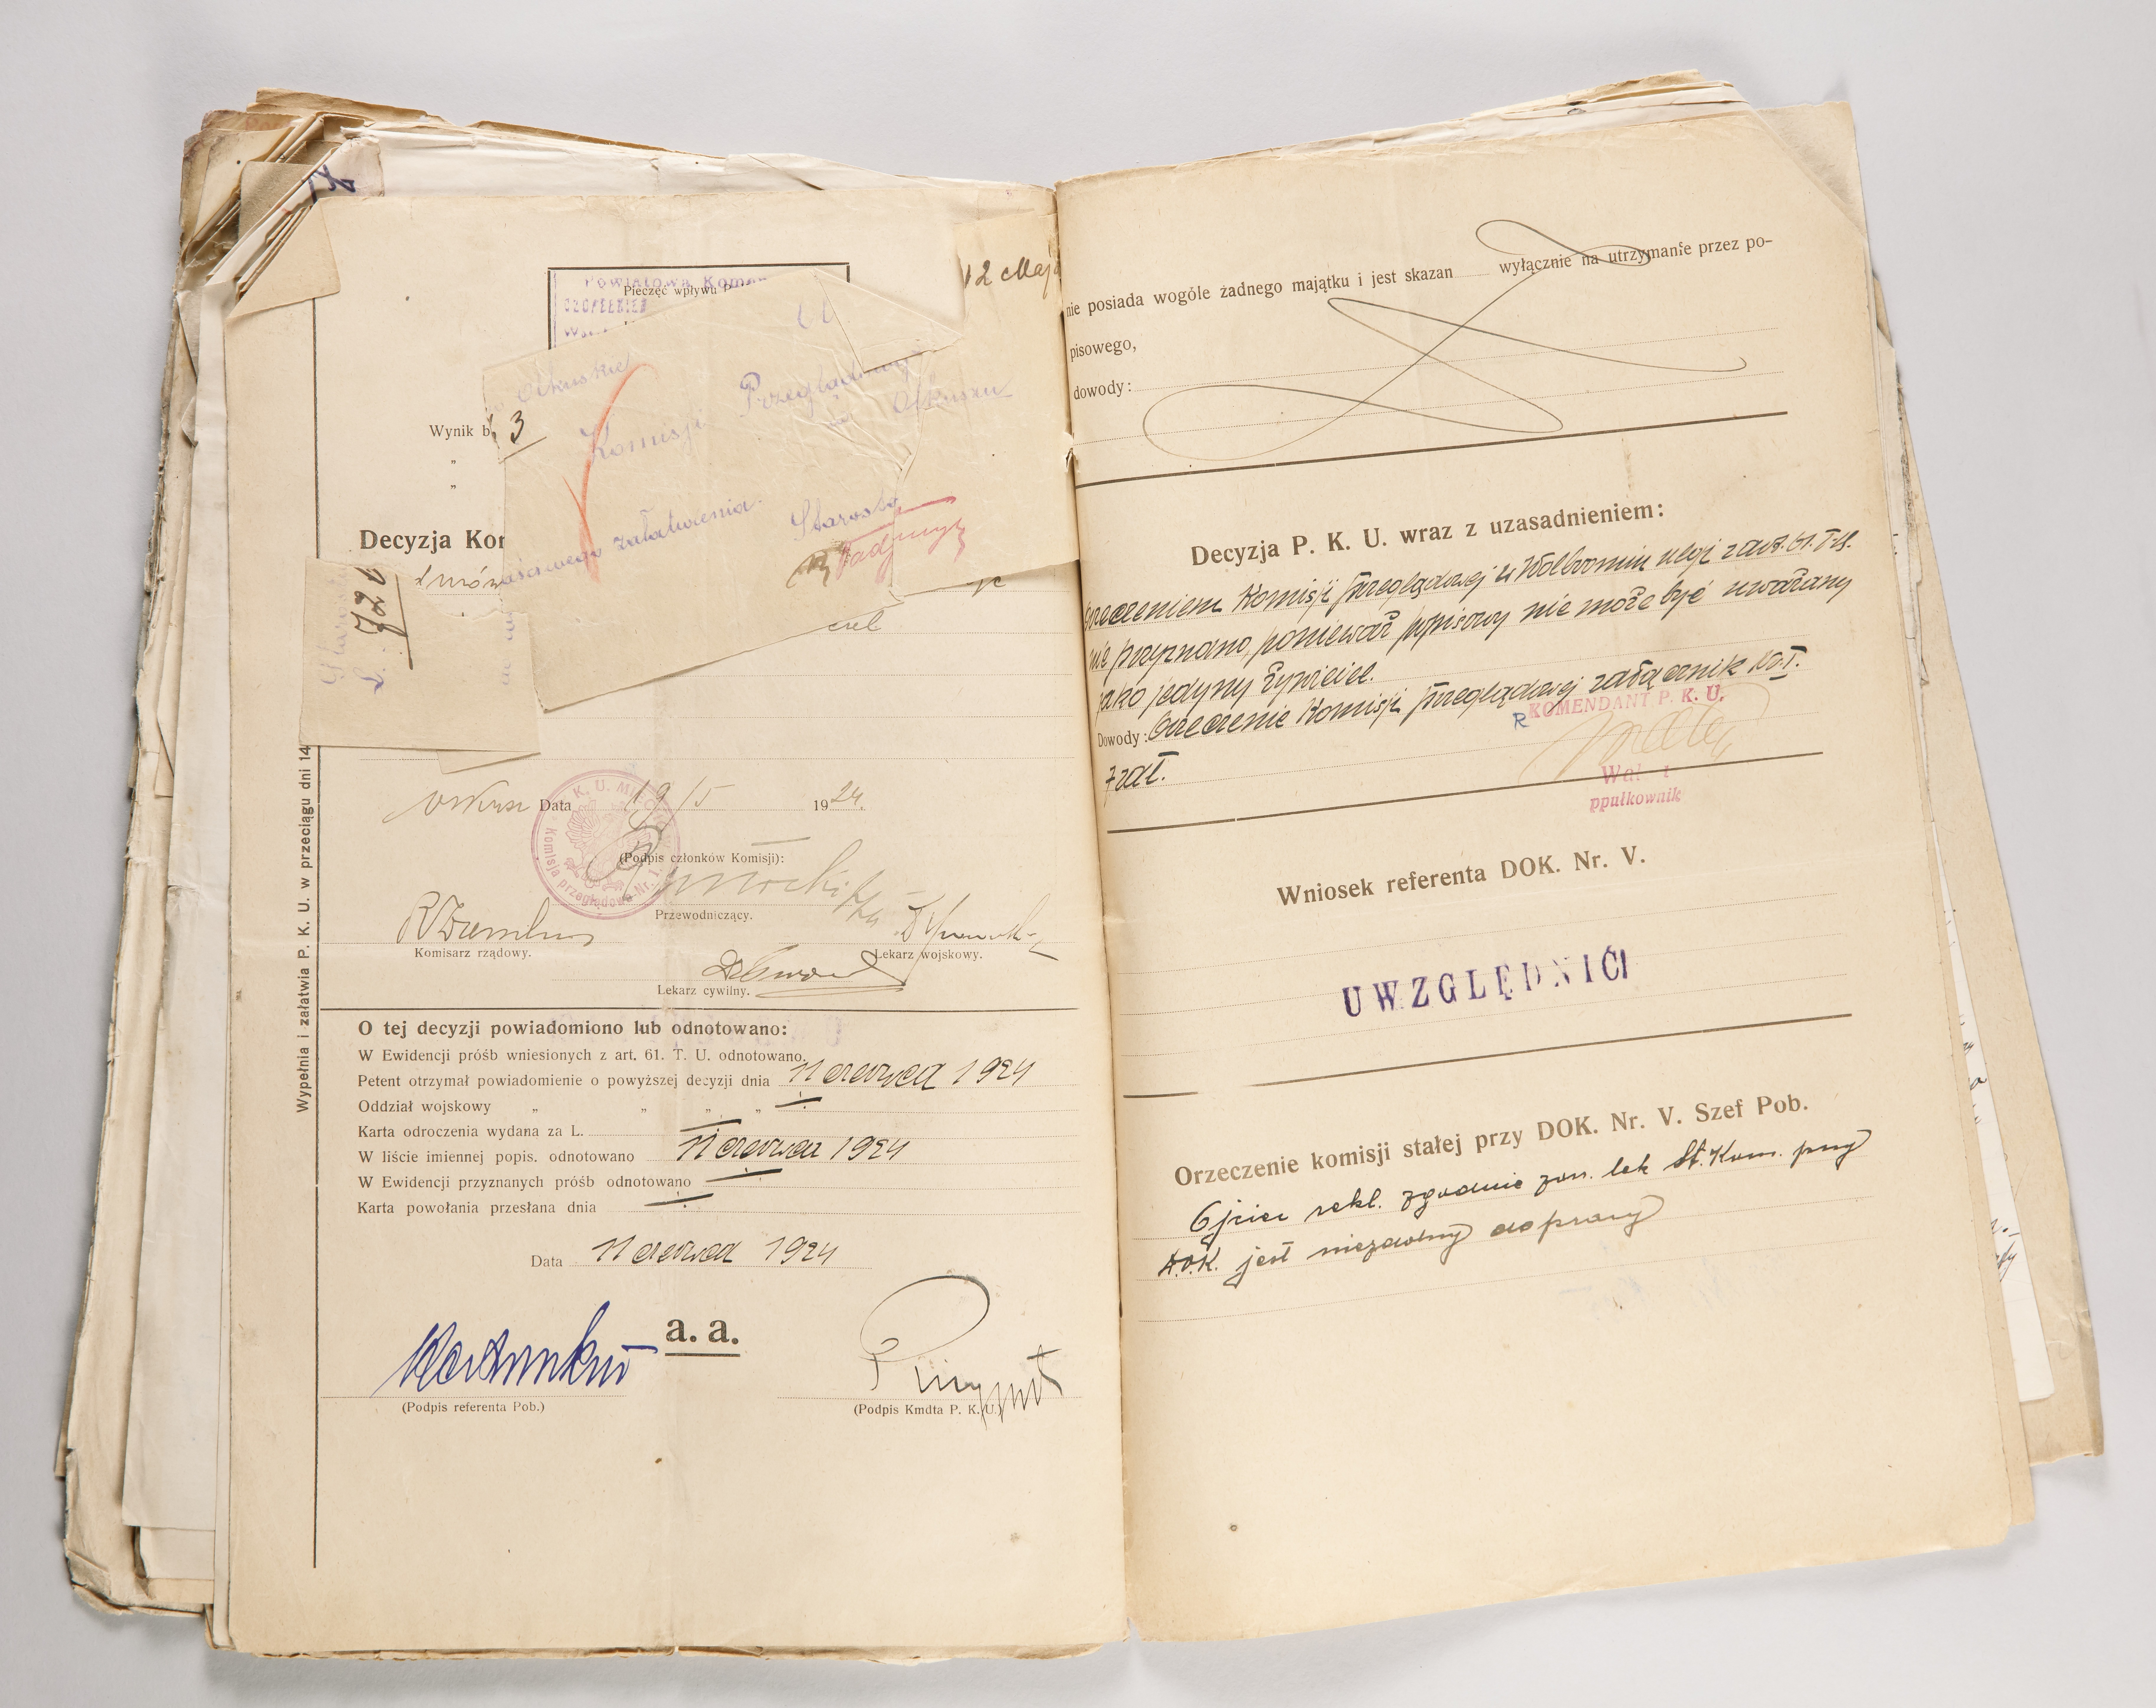 12 Maja
Powiatowa Komen
Pieczęć wpływu
Olkuskie
Komisji Przeglądowej
w Olkuszu
Wynik b 3
"
"
załatwienia. Starosta
Decyzja Kon
L. 720
Wypełnia i załatwia P. K. U. w przeciągu dni 14
Olkusz Data 19/5 1924.
P. K. U. MIECHÓW
Komisja przeglądowa Nr. 1
(Podpis członków Komisji):
Przewodniczący.
Komisarz rządowy.
Lekarz wojskowy.
Lekarz cywilny.
O tej decyzji powiadomiono lub odnotowano:
W Ewidencji próśb wniesionych z art. 61. T. U. odnotowano.
Petent otrzymał powiadomienie o powyższej decyzji dnia 11 czerwca 1924
Oddział wojskowy " " " "
Karta odroczenia wydana za L.
W liście imiennej popis. odnotowano 11 czerwca 1924
W Ewidencji przyznanych próśb odnotowano
Karta powołania przesłana dnia
Data 11 czerwca 1924
a. a.
(Podpis referenta Pob.)
(Podpis Kmdta P. K. U.)
nie posiada wogóle żadnego majątku i jest skazan wyłącznie na utrzymanie przez po-
pisowego,
dowody:
Decyzja P. K. U. wraz z uzasadnieniem:
Orzeczeniem Komisji przeglądowej w Wolbromiu ulgi z art. 61. T. U.
nie przyznano, ponieważ popisowy nie może być uważany
jako jedyny żywiciel.
Dowody: Orzeczenie Komisji przeglądowej załącznik No. I.
KOMENDANT P. K. U.
7 zał.
ppułkownik
Wniosek referenta DOK. Nr. V.
UWZGLĘDNIĆ
Orzeczenie komisji stałej przy DOK. Nr. V. Szef Pob.
Ojciec rekl. zgodnie z orz. lek St. Kom. przy
D.O.K. jest niezdolny do pracy